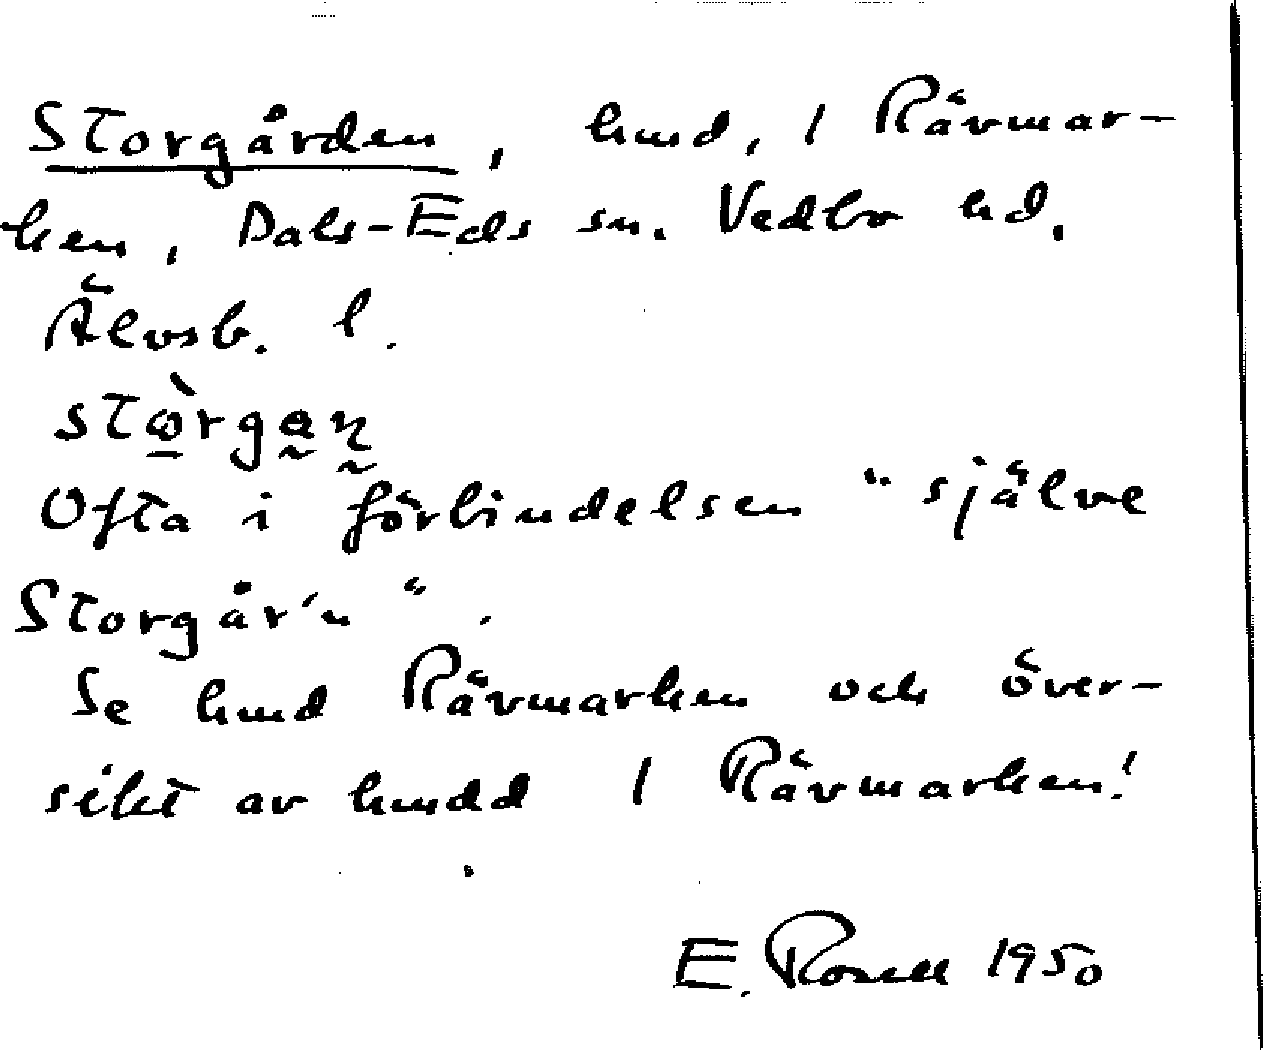 Storgården, hmd, 1 Rävmar-
ken, Dals-Eds sn. Vedbo hd.
Älvsb. l.
Ofta i förbindelsen "själve
Storgår'n".
Se hmd Rävmarken och över-
sikt av hmdd 1 Rävmarken!
E. Rosell 1950